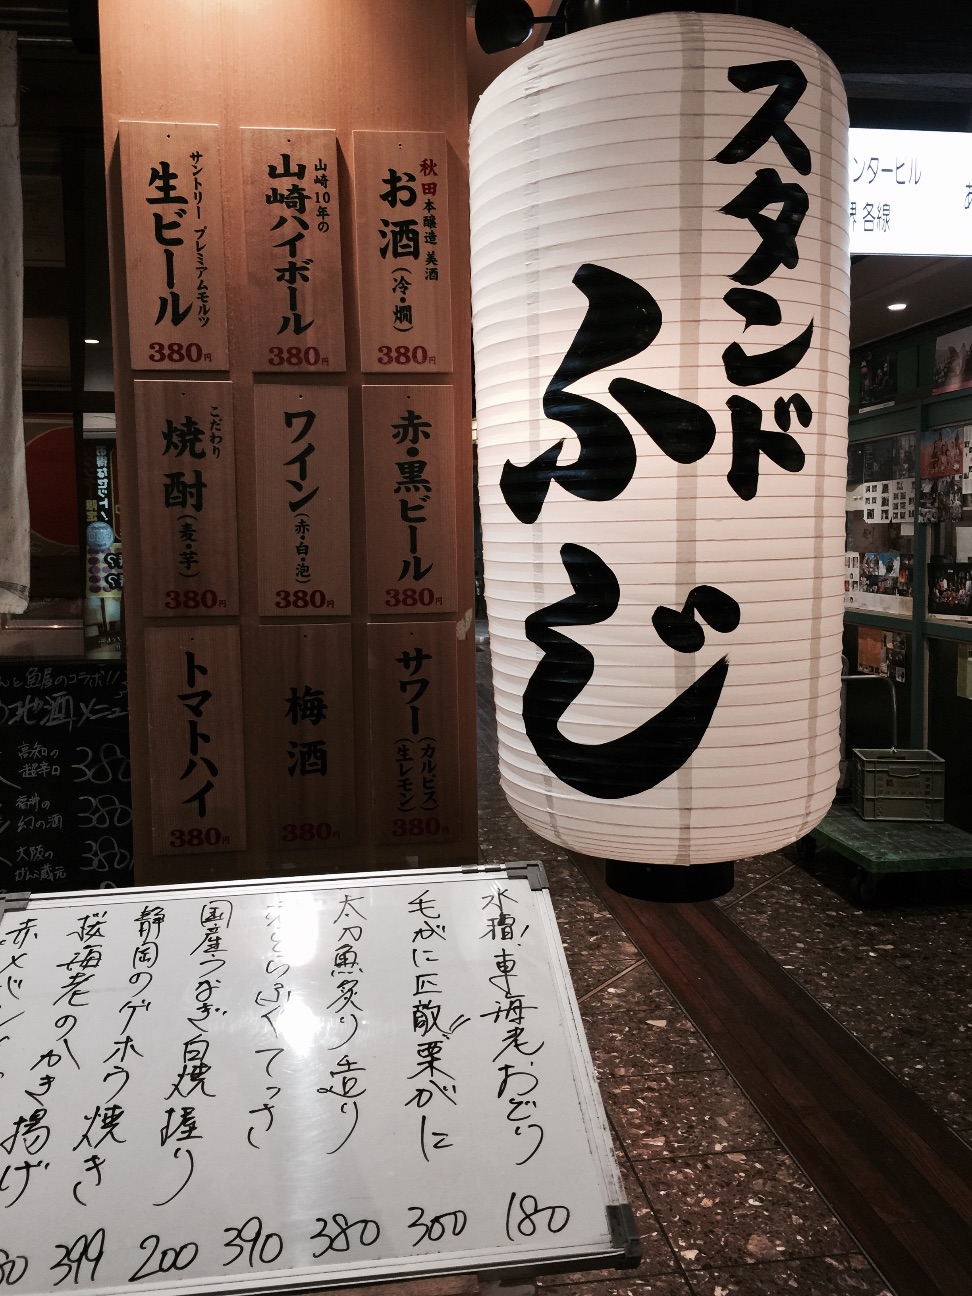 スタンド
ふじ
サントリー プレミアムモルツ
生ビール
380円
山崎10年の
山崎ハイボール
380円
秋田本醸造 美酒
お酒(冷・燗)
380円
こだわり
焼酎(麦・芋)
380円
ワイン(赤・白・泡)
380円
赤・黒ビール
380円
トマトハイ
380円
梅酒
380円
サワー(カルピス)(生レモン)
380円
ンタービル
界 各線
と魚屋のコラボ!!
地酒メニュー
高知の
超辛口
380
幻の酒
380
大阪の
ぜんぶ蔵元
380
水槽!車海老おどり
180
毛がに匹敵!!栗がに
300
太刀魚炙り造り
380
とらふぐてっさ
390
国産うなぎ白焼握り
200
静岡のゲホウ焼き
399
桜海老のかき揚げ
80
赤メバル